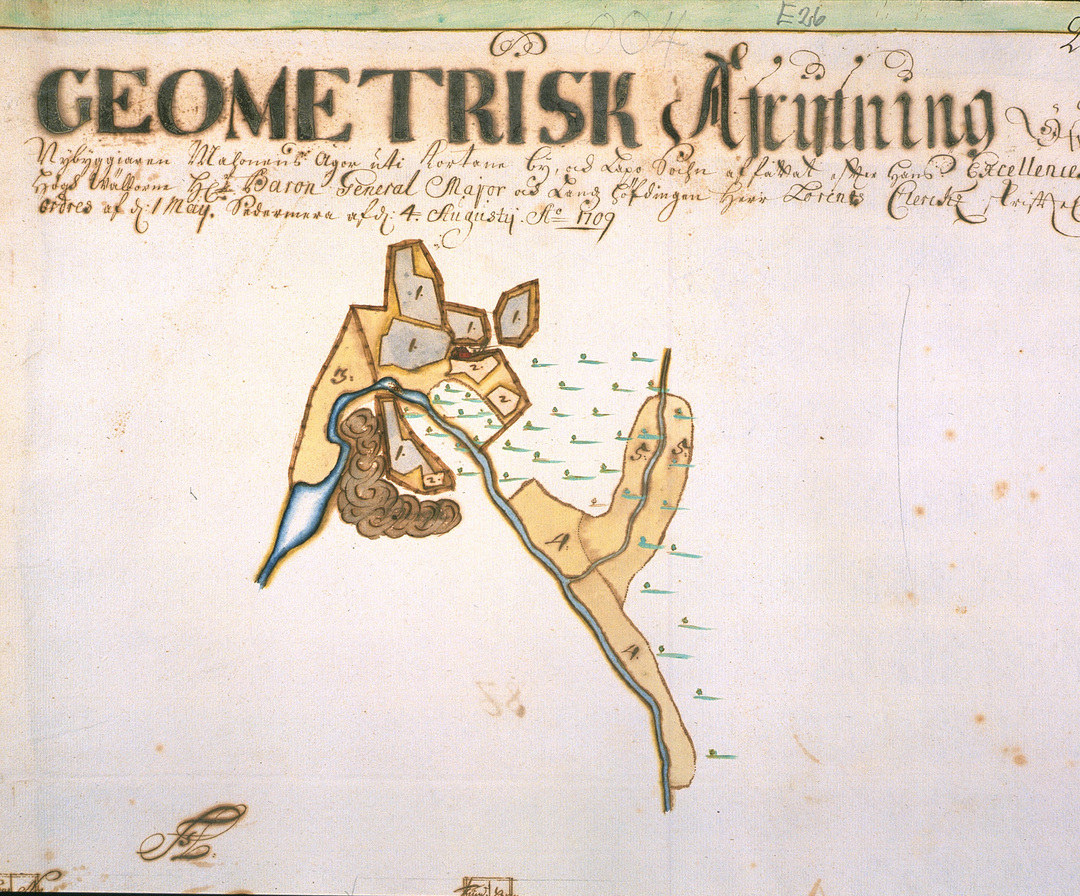 E 26
004
GEOMETRISK Afrijtning
Nybyggiaren Matonens Ägor uti Kortane By, och Lapo Sochn affattat efter hans Excellence
Högh Wälborne Hr Baron General Major och Landz Höfdingen Herr Lorentz Clerck
Ordres af d. 1 May. Sedermera af d. 4. Augustij. Ao 1709
1.
1.
1.
1.
3.
2.
2.
1.
2.
5.
5.
4.
4.